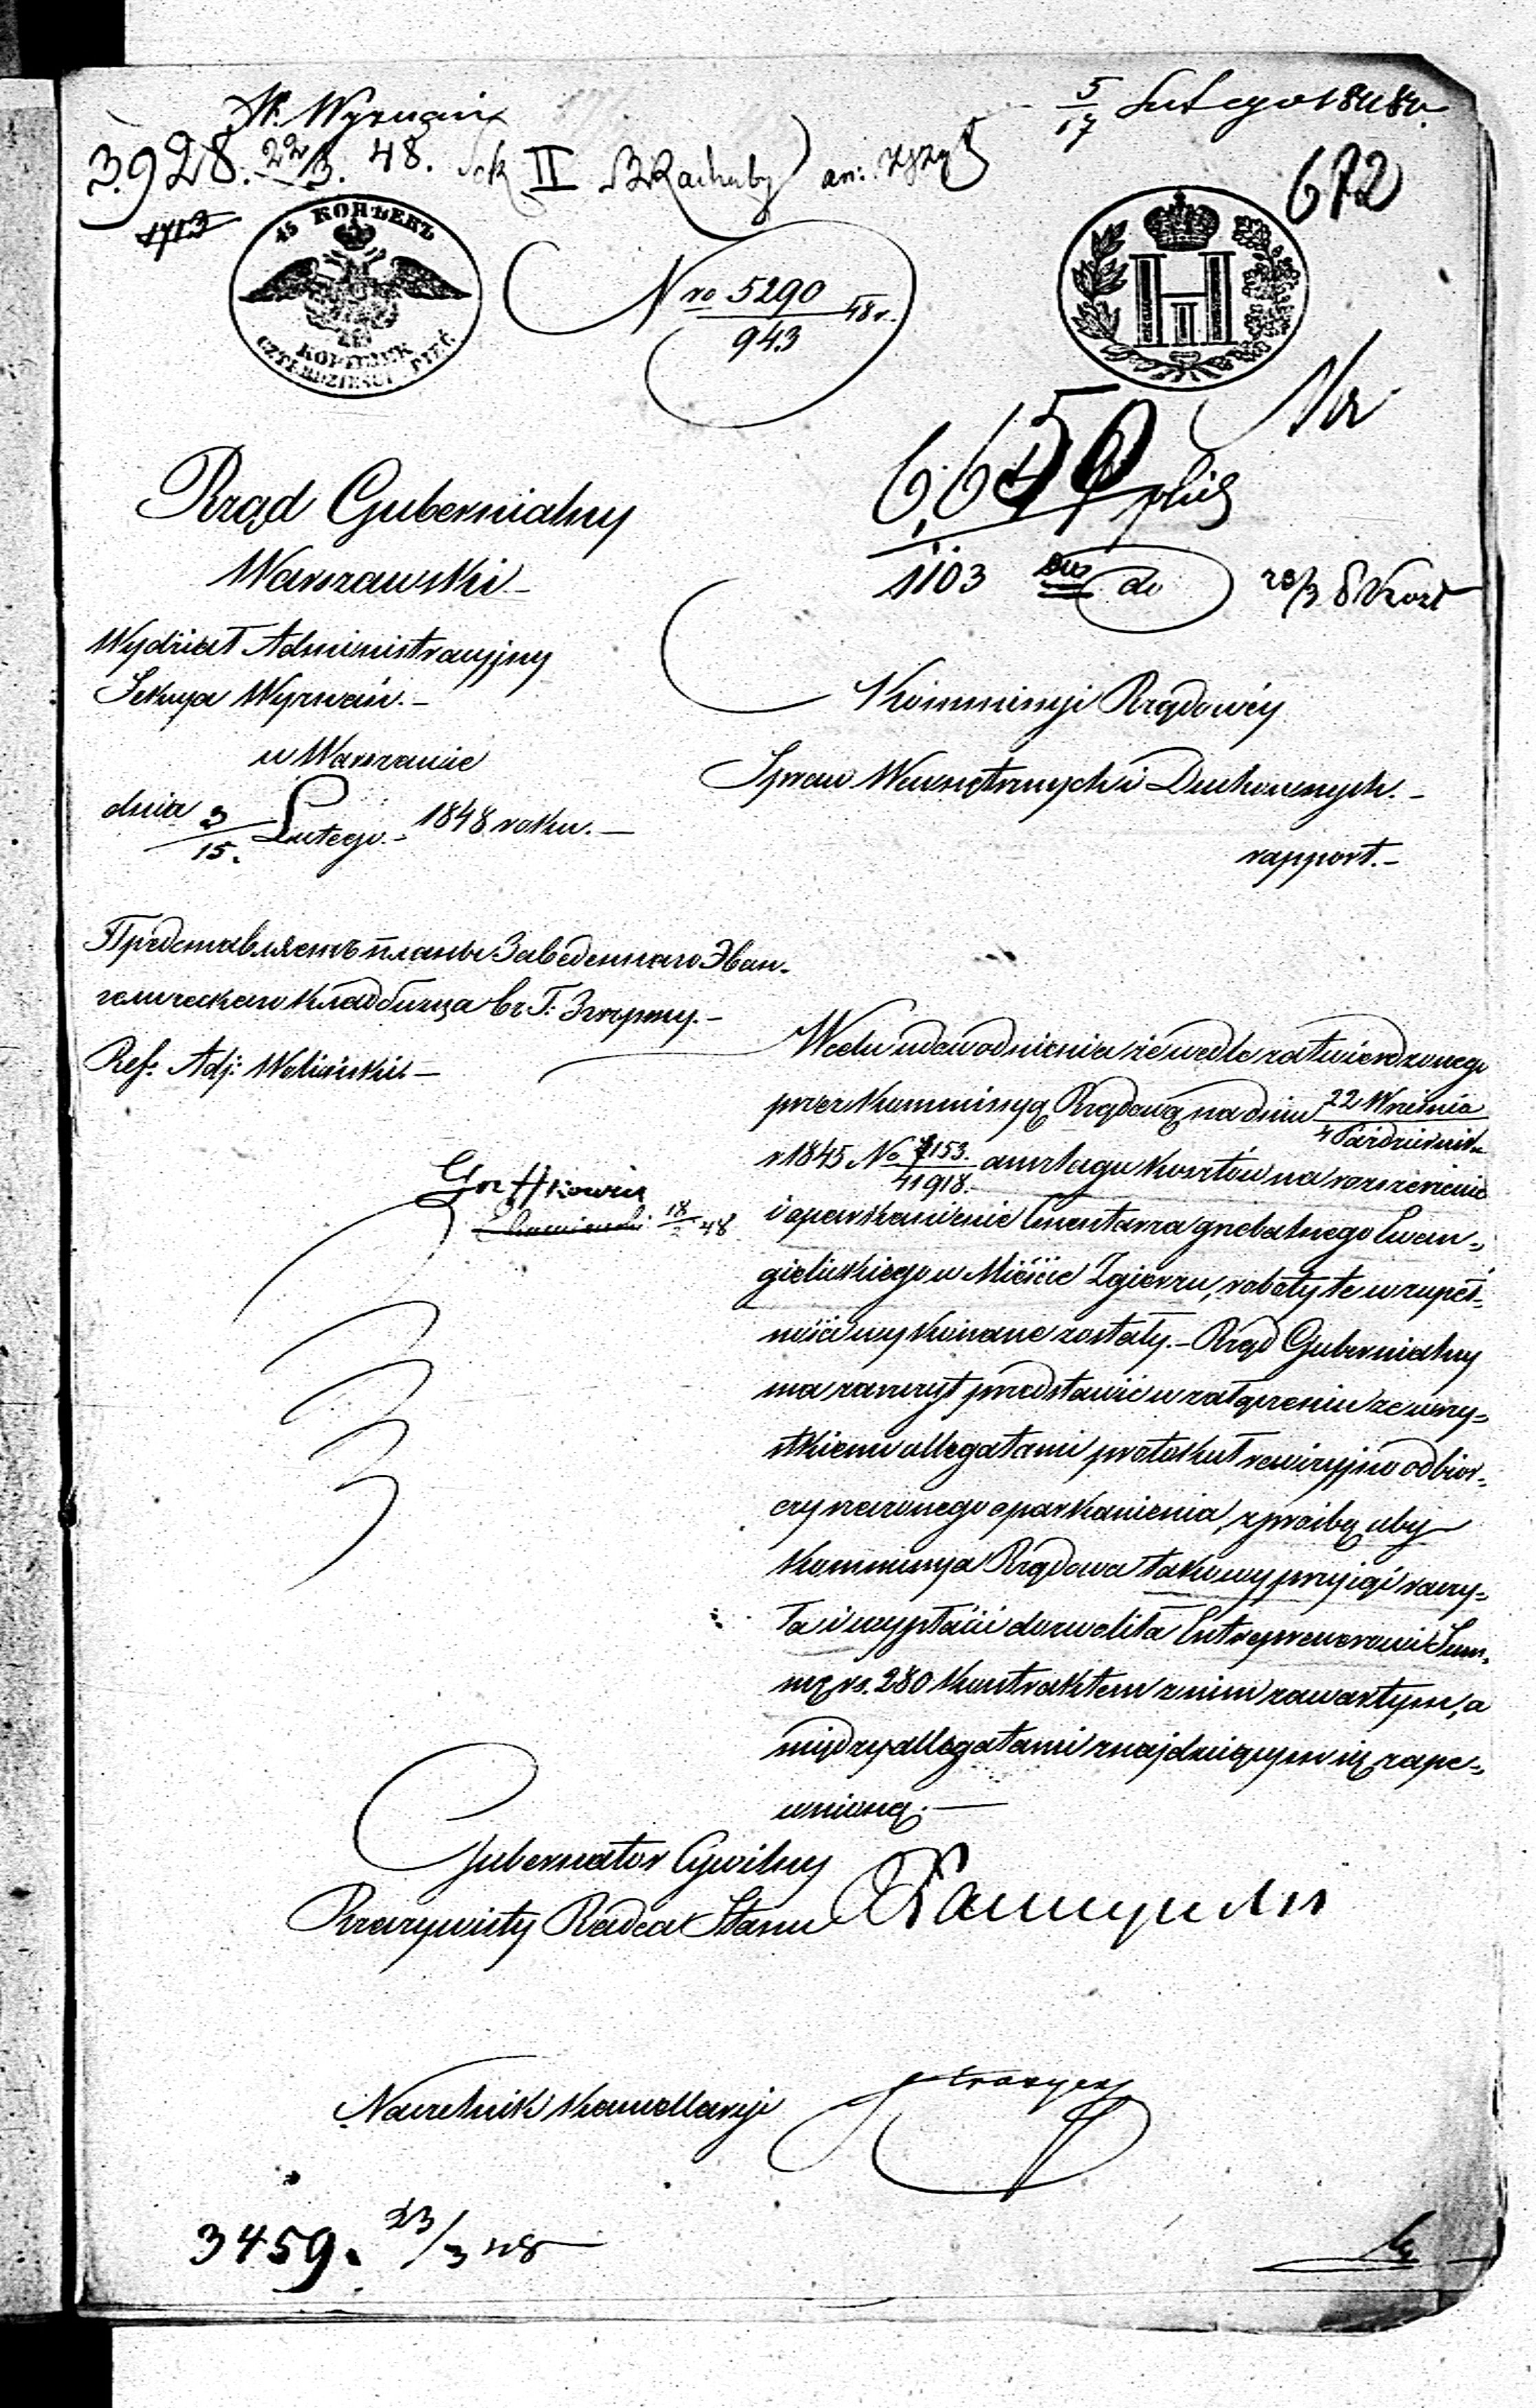 W. Wyznań
5/17 Lutego 1848 r.
3928. 22/3. 48. Sek II B Rachuby
672
1713
45 КОПѢЕКЪ
KOPIEJEK
CZTERDZIEŚCI PIĘĆ
Nro 5290/943 48 r.
Н I
Na
6,650
1103
do
23/3 8
Rząd Gubernialny
Warszawski. –
Wydział Administracyjny
Sekcya Wyznań. –
w Warszawie
dnia 3/15. Lutego. – 1848 roku. –
Kommissyi Rządowéy
Spraw Wewnętrznych i Duchownych. –
rapport. –
Представляетъ планы Заведеннаго Эван-
гелическаго кладбища въ Г: Згержу. –
Ref. Adj: Woliński. –
18/48
W celu udowodnienia że wedle zatwierdzonego
przez Kommissyą Rządową na dniu 22 Września/4 Październik
r 1845 No 7153./41918. anszlagu kosztów na rozszerzenie
i oparkanienie Cmentarza grzebalnego Ewan-
gielickiego w Mieście Zgierzu, roboty te w zupeł-
ności wykonane zostały. – Rząd Gubernialny
ma zaszczyt przedstawić w załączeniu ze wszy-
stkiemi allegatami protokuł rewizyjno odbior-
czy rzeczonego oparkanienia, z prośbą aby
Kommissya Rządowa takowy przyjąć raczy-
ła i wypłacić dozwoliła Entreprenerowi Sum-
mę rs. 280 kontraktem z nim zawartym, a
między allegatami znajdującym się zape-
wnioną. –
Gubernator Cywilny
Rzeczywisty Radca Stanu
Naczelnik Kancellaryi
3459. 23/3 48